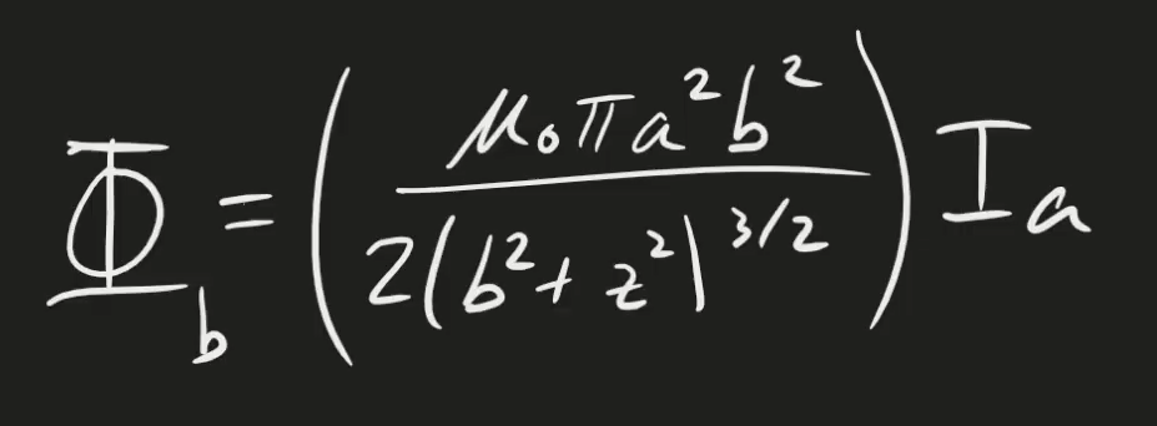 Φ_b = (μ₀πa²b² / 2(b²+z²)^{3/2}) I_a